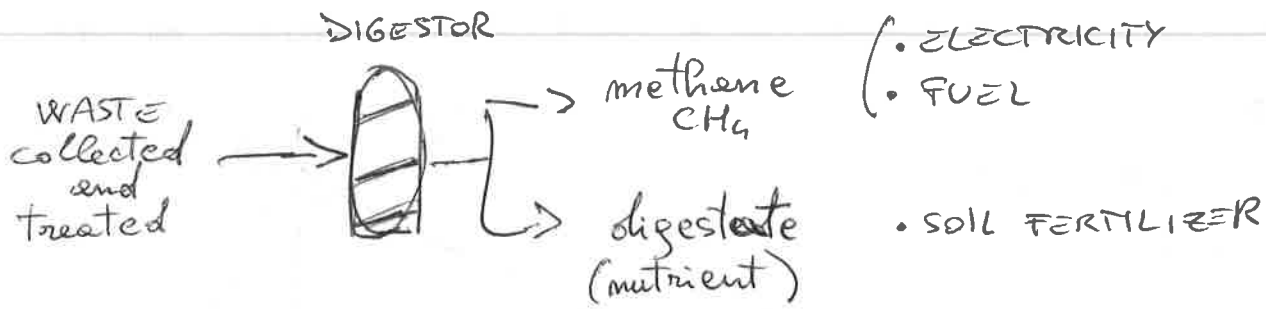 DIGESTOR
WASTE
collected
and
treated
methane
CH4
• ELECTRICITY
• FUEL
digestate
(nutrient)
• SOIL FERTILIZER